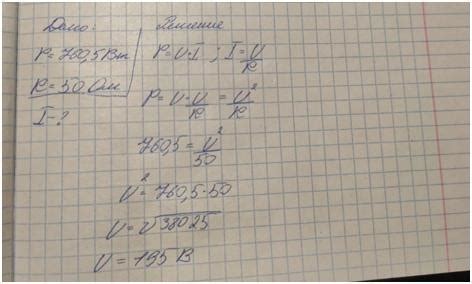 Дано:
P=760,5 Вт
R=50 Ом
I-?
Решение
P=U·I ; I=U/R
P=U·U/R=U²/R
760,5=U²/50
U²=760,5·50
U=√38025
U=195 В